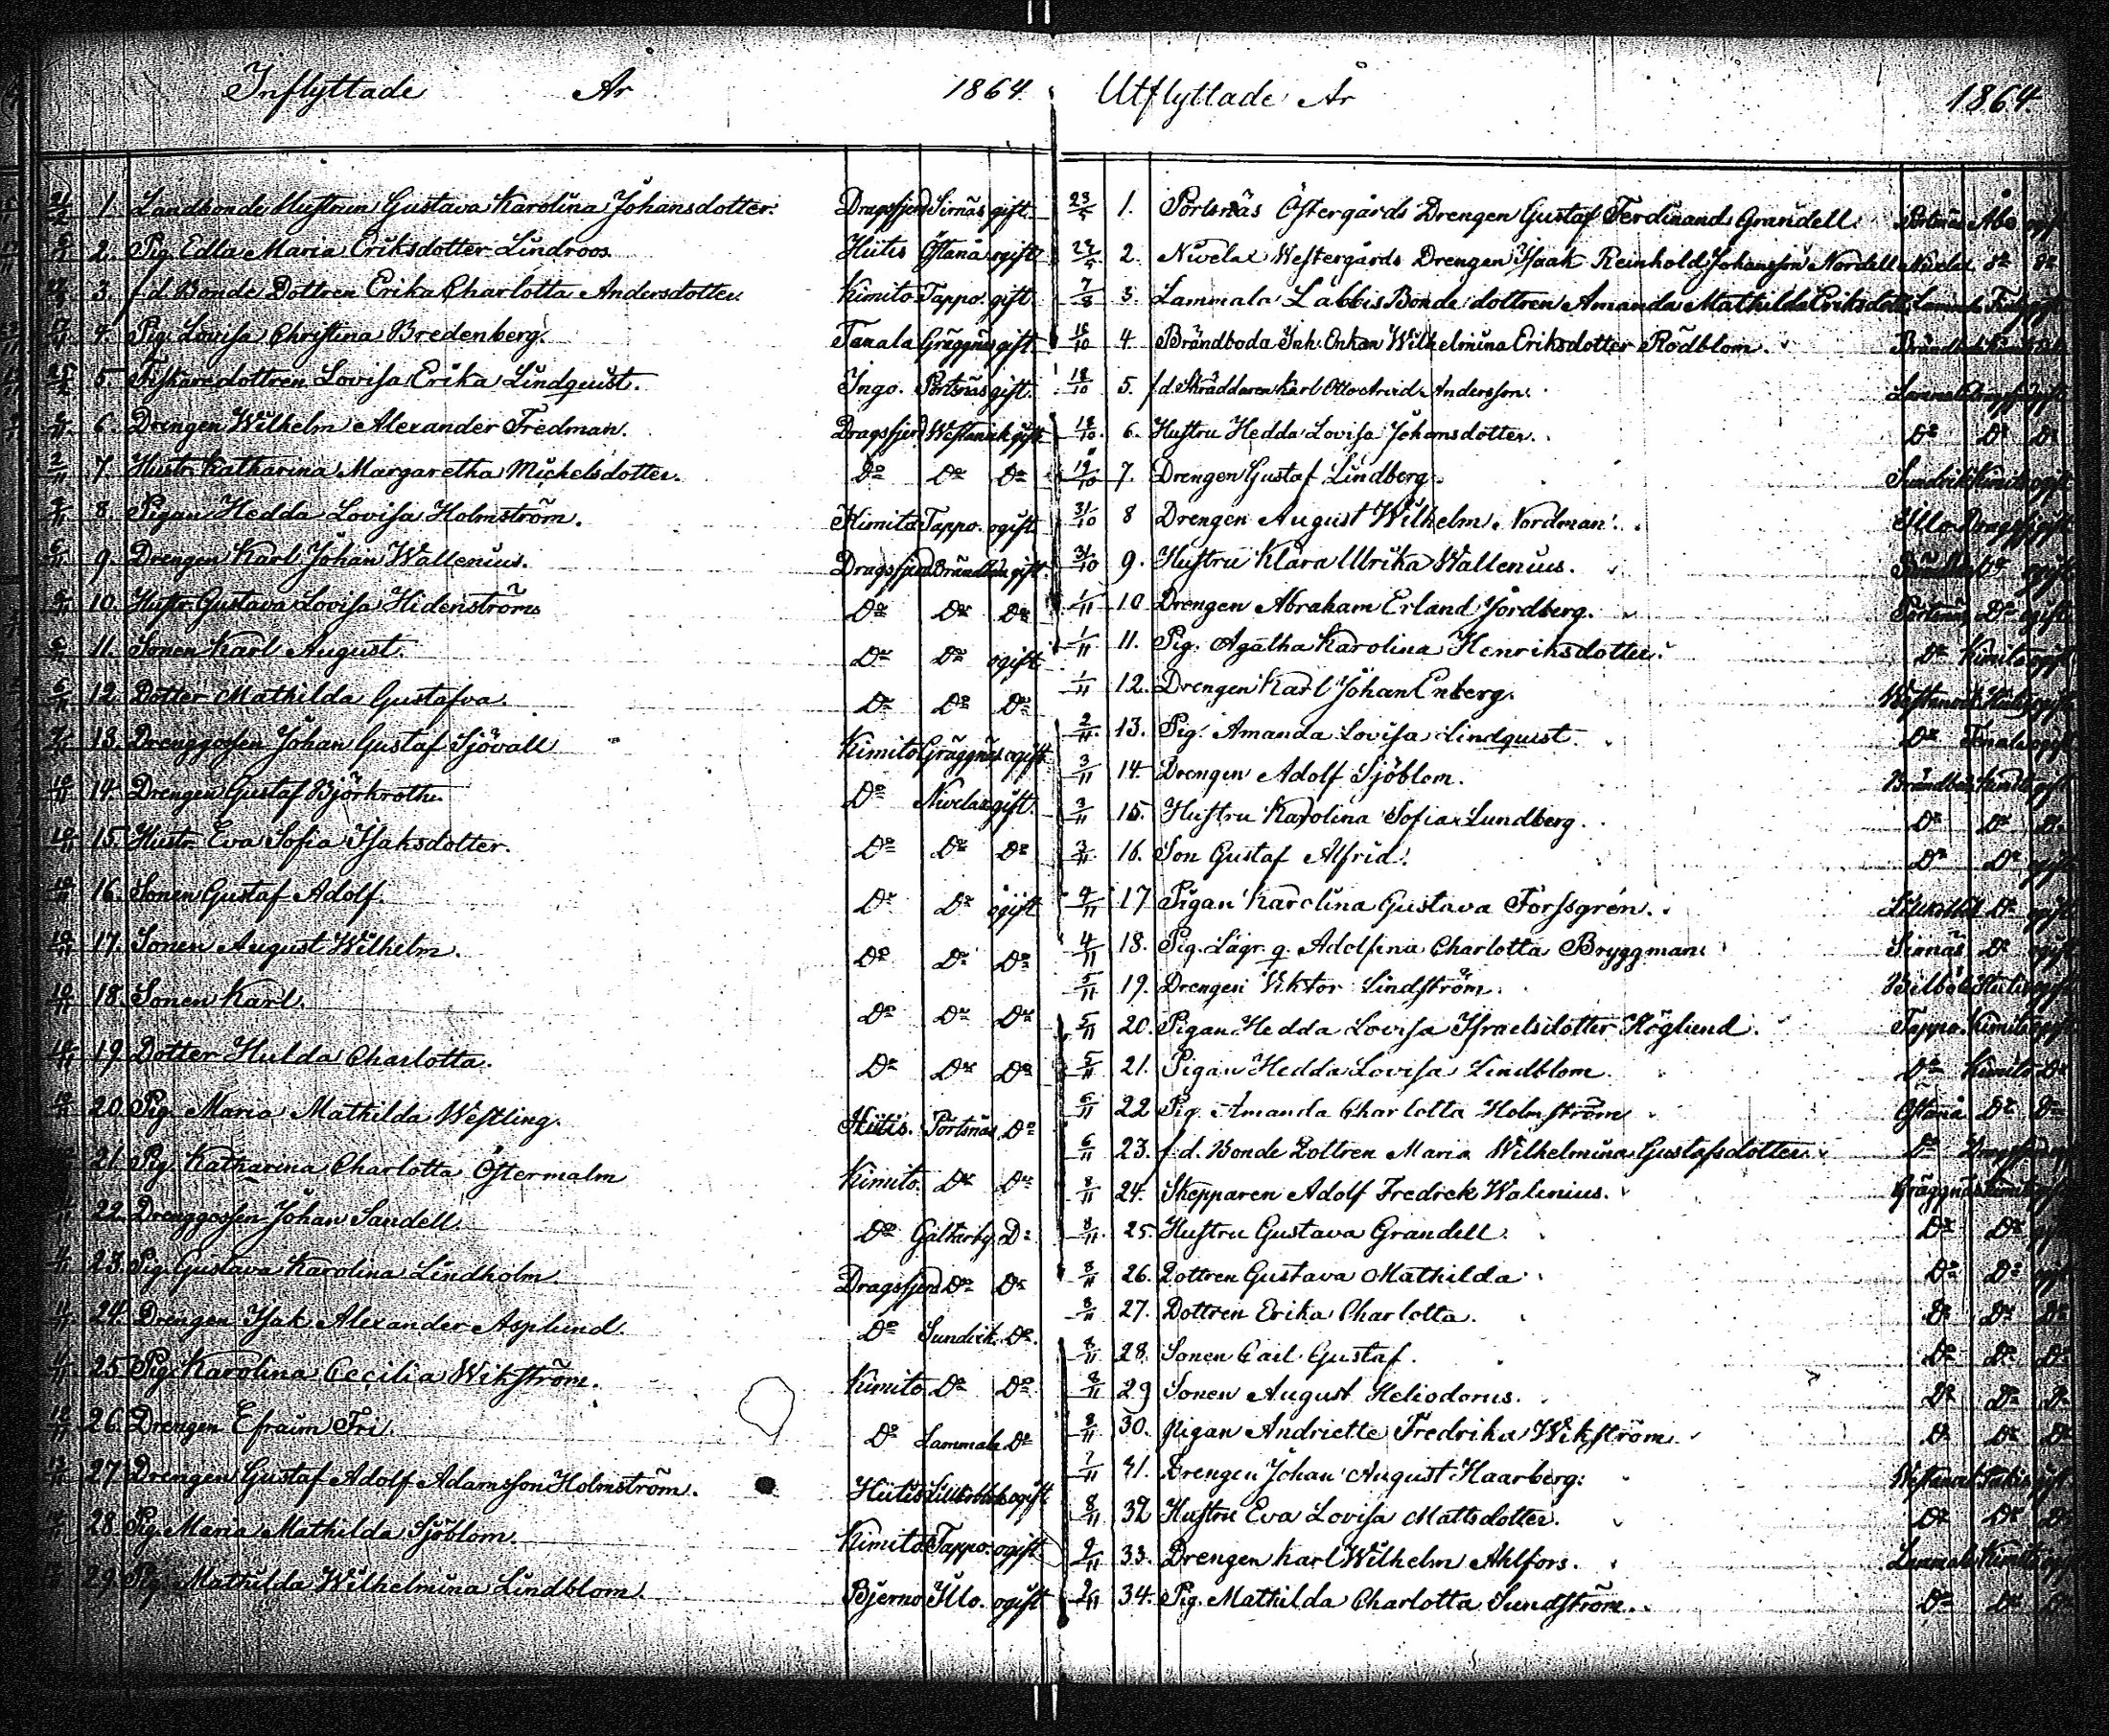 Inflyttade År 1864.
1. Landbonde Hustrun Gustava Karolina Johansdotter. Dragsfjerd Sirnäs gift.
2. Pig. Edla Maria Eriksdotter Lindroos. Hitis Östanå ogift
3. f.d. Bonde Dottren Erika Charlotta Andersdotter. Kimito Tappo. gift
4. Pig. Lovisa Christina Bredenberg. Tenala Gräggnäs gift.
5. Fiskaredottren Lovisa Erika Lindquist. Ingo. Pörtsnäs gift.
6. Drengen Wilhelm Alexander Fredman. Dragsfjerd Westanvik gift
2/11 7. Hustr. Katharina Margaretha Mickelsdotter. Do Do Do
8. Pigan Hedda Lovisa Holmström. Kimito Tappo. ogift
9. Drengen Karl Johan Wallenius. Dragsfjerd gift.
10. Hustr. Gustava Lovisa Hidenström Do Do Do
11. Sonen Karl August. Do Do ogift
12. Dotter Mathilda Gustafva. Do Do Do
13. Drenggossen Johan Gustaf Sjövall Kimito Gräggnäs ogift
14. Drengen Gustaf Björkroth. Do Nivelax gift.
15. Hustr. Eva Sofia Isaksdotter. Do Do Do
16. Sonen Gustaf Adolf. Do Do ogift
17. Sonen August Wilhelm. Do Do Do
18. Sonen Karl. Do Do Do
19. Dotter Hulda Charlotta. Do Do Do
20. Pig. Maria Mathilda Westling. Hitis. Pörtsnäs Do
21. Pig. Katharina Charlotta Östermalm Kimito. Do Do
22. Drenggossen Johan Sandell Do Galtarby Do
23. Pig. Gustava Karolina Lindholm Dragsfjerd Do Do
24. Drengen Isak Alexander Asplund. Do Sundvik. Do.
25. Pig. Karolina Cecilia Wikström. Kimito Do Do
26. Drengen Efraim Fri. Do Lammala Do
27. Drengen Gustaf Adolf Adamsson Holmström. Hitis ogift
28. Pig. Maria Mathilda Sjöblom. Kimito Tappo. ogift
29. Pig. Mathilda Wilhelmina Lindblom. Bjerno Illo. ogift
Utflyttade År 1864
23/5 1. Pörtsnäs Östergårds Drengen Gustaf Ferdinand Grandell. Pörtsnäs Åbo
2. Nivelax Westergårds Drengen Isaak Reinhold Johansson Nordell Nivelax do do
7/8 3. Lammala Labbis Bonde dottren Amanda Mathilda
4. Brändboda Inh. Enkan Wilhelmina Eriksdotter Rödblom.
18/10 5. f.d. Skräddaren Karl Otto Arvid Andersson.
18/10 6. Hustru Hedda Lovisa Johansdotter. Do Do Do
19/10 7. Drengen Gustaf Lindberg. Sundvik Kimito ogift
31/10 8 Drengen August Wilhelm Nordman. Illo Dragsfj gift
31/10 9. Hustru Klara Ulrika Wallenius.
1/11 10 Drengen Abraham Erland Jordberg. Pörtsnäs Do ogift
1/11 11. Pig. Agatha Karolina Henriksdotter. Do Kimito ogift
1/11 12. Drengen Karl Johan Enberg. Westanvik Hitis
2/11 13. Pig. Amanda Lovisa Lindquist. Do
3/11 14. Drengen Adolf Sjöblom. Kimito gift
3/11 15. Hustru Karolina Sofia Lundberg. Do Do Do
3/11 16. Son Gustaf Alfrid. Do Do
4/11 17 Pigan Karolina Gustava Forssgrén. Do ogift
4/11 18. Pig. Lägr. q. Adolfina Charlotta Bryggman. Sirnäs Do
5/11 19. Drengen Viktor Lindström. Hitis
5/11 20. Pigan Hedda Lovisa Israelsdotter Höglund. Tappo. Kimito
5/11 21. Pigan Hedda Lovisa Lindblom. Do Kimito Do
6/11 22 Pig. Amanda Charlotta Holmström Östanå Do Do
6/11 23. f.d. Bonde Dottren Maria Wilhelmina Gustafsdotter. Do
8/11 24. Skepparen Adolf Fredrek Walenius. Gräggnäs Kimito
8/11 25. Hustru Gustava Grandell. Do Do
8/11 26. Dottren Gustava Mathilda Do Do
8/11 27. Dottren Erika Charlotta. Do Do Do
8/11 28. Sonen Carl Gustaf. Do Do Do
8/11 29 Sonen August Heliodorus. Do Do Do
8/11 30. Pigan Andriette Fredrika Wikström. Do Do Do
31. Drengen Johan August Haarberg. Westanvik
8/11 32 Hustru Eva Lovisa Mattsdotter. Do Do Do
9/11 33. Drengen Karl Wilhelm Ahlfors. Lammala Kimito
34. Pig. Mathilda Charlotta Sundström. Do Do Do